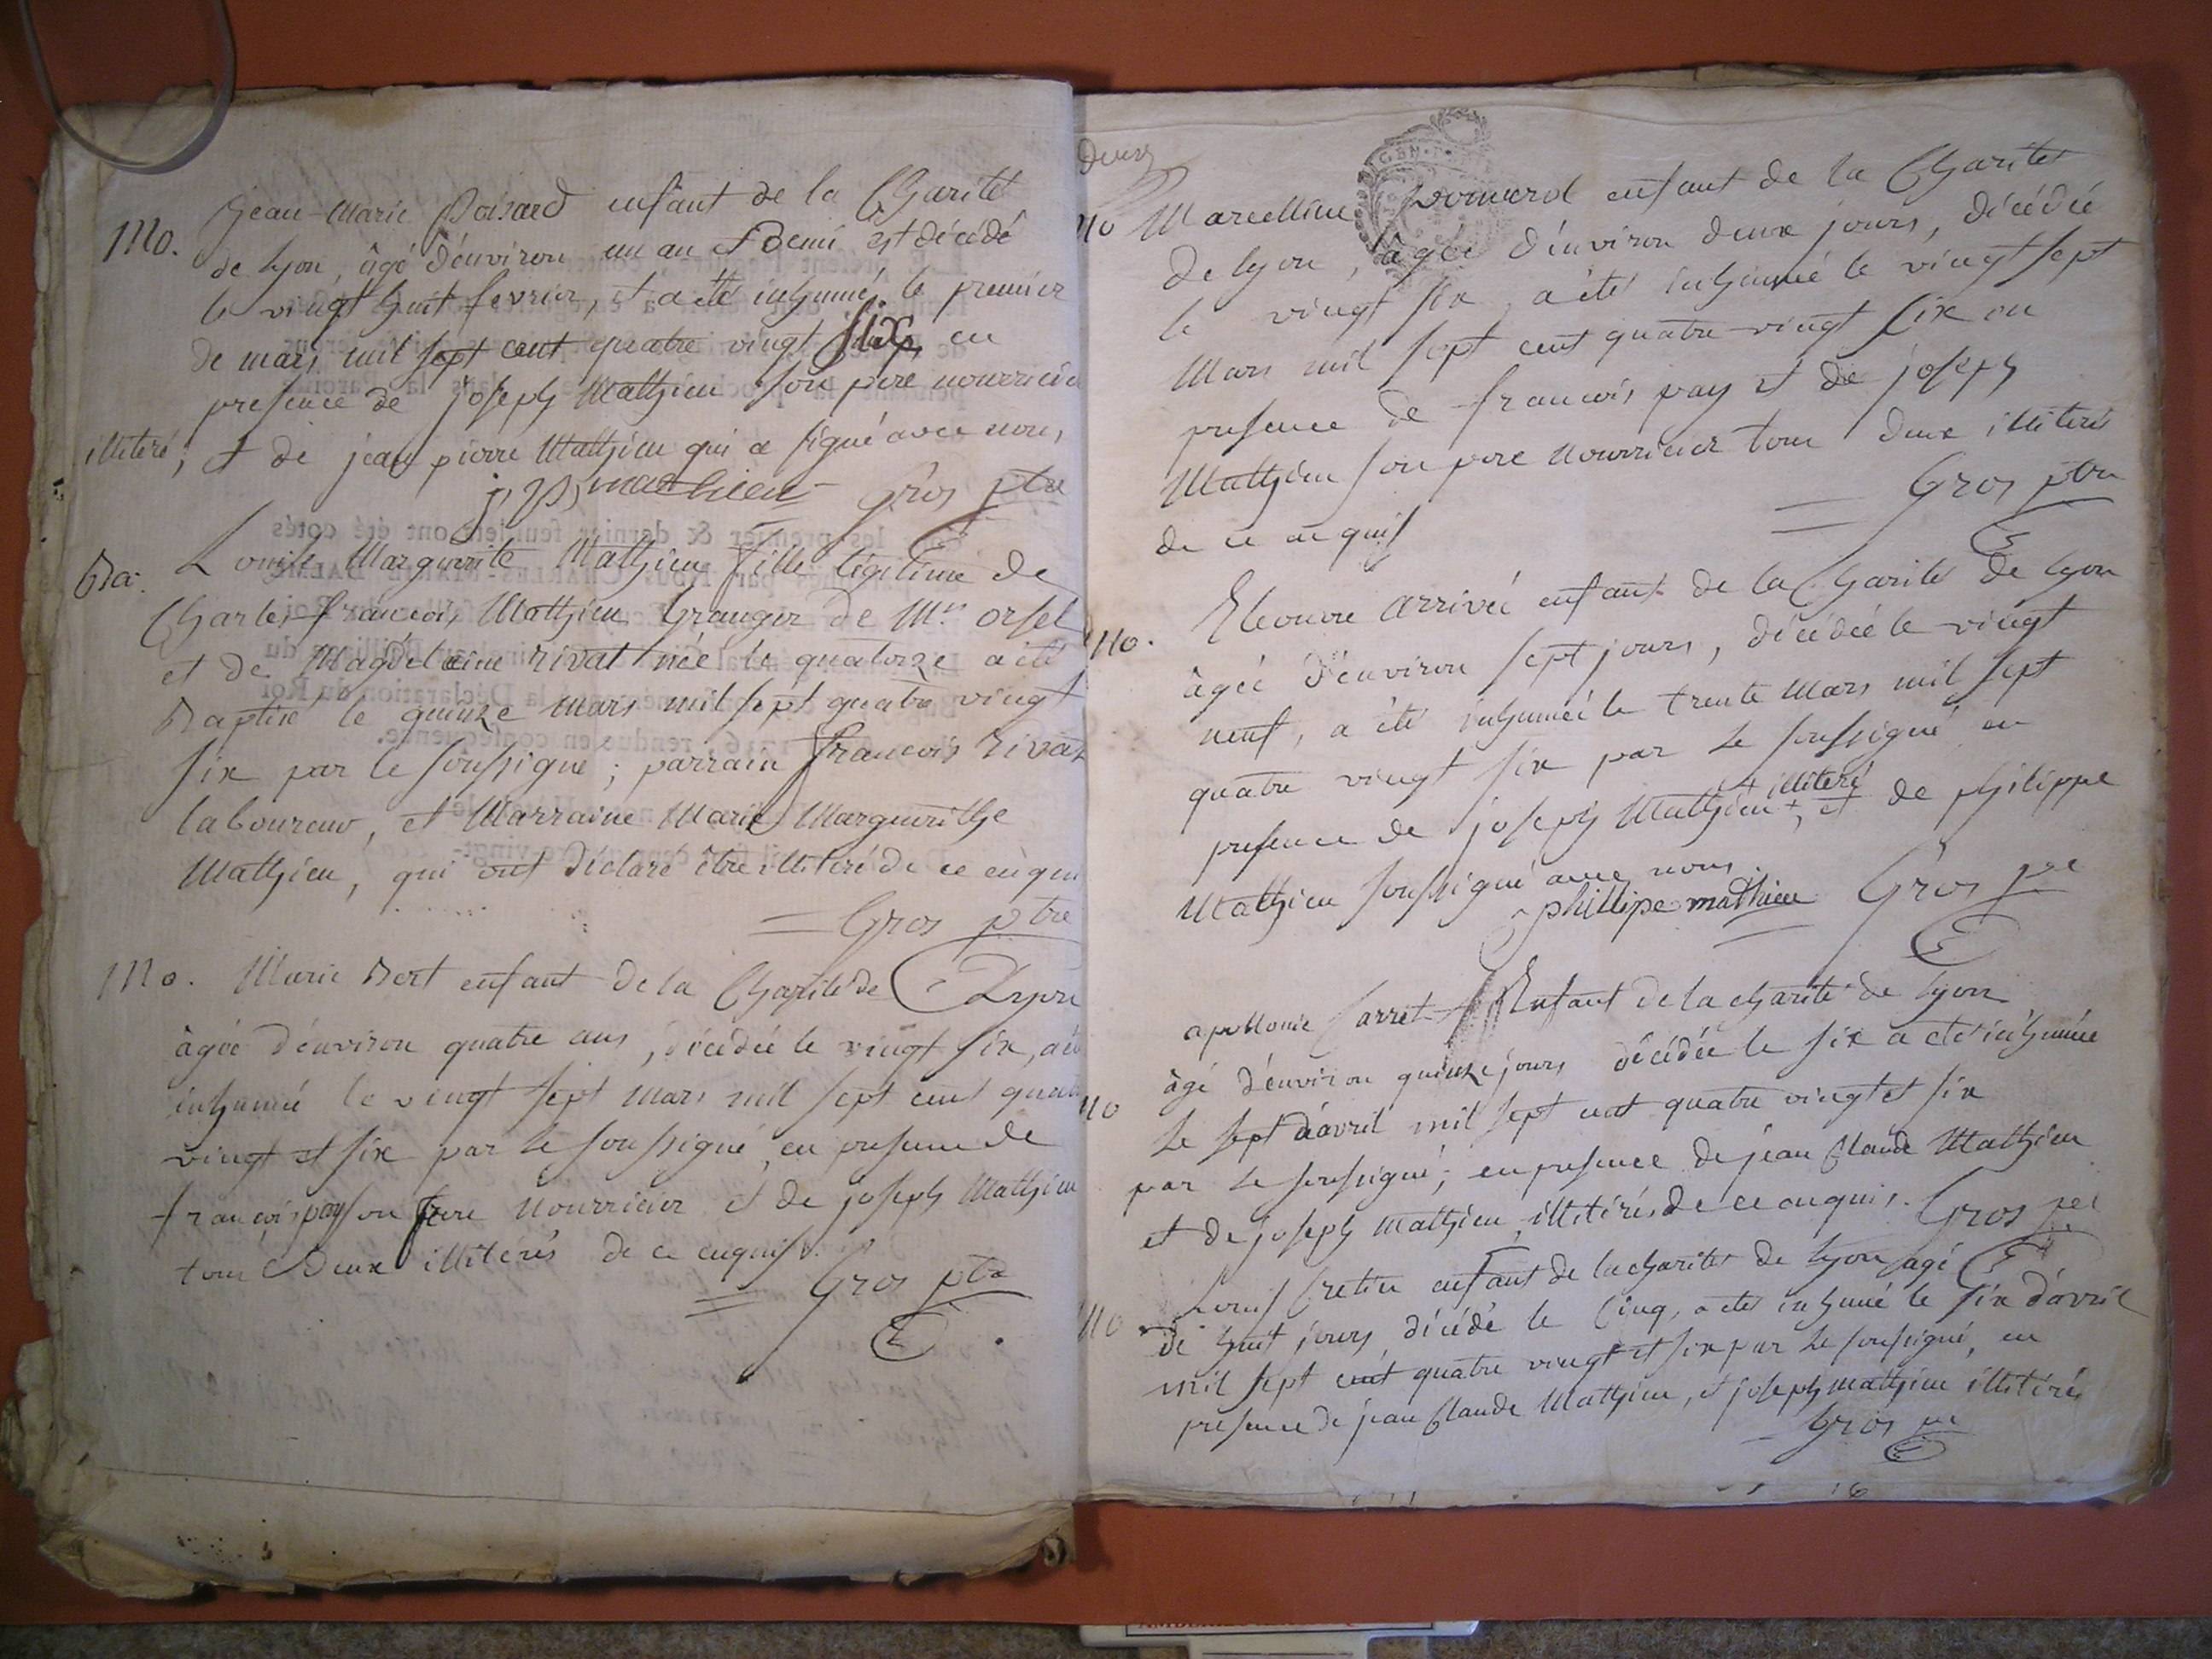 Mo. Jean-Marie Poisard enfant de la Charité
de lyon, âgé d'environ un an et demi est décédé
le vingt huit fevrier, et a été inhumé le premier
de mars mil sept cent quatre vingt six, en
presence de joseph Mathieu son pere nourricier
illiteré; et de jean pierre Mathieu qui a signé avec nous,
j p mathieu Gros ptre
Ba. Louise Marguerite Mathieu fille légitime de
Charles-francois Mathieu Granger de Mr. orsel
et de Magdeleine rivat née le quatorze a été
Baptisé le quinze mars mil sept quatre vingt
six par le soussigné; parrain francois rivat
laboureur, et Marraine Marie Marguerithe
Mathieu, qui ont déclaré être illiteré de ce enqui
Gros ptre
Mo. Marie Bert enfant de la Charité de Lyon
âgée d'environ quatre ans, décédée le vingt six, a été
inhumé le vingt sept mars mil sept cent quatre
vingt et six par le soussigné, en presence de
françois pay son pere nourricier et de joseph Mathieu
tous deux illiterés de ce enquis.
Gros ptre
deux
Mo Marcelline pomerol enfant de la Charité
de lyon, âgée d'environ deux jours, décédée
le vingt six, a été inhumée le vingt sept
Mars mil sept cent quatre-vingt six en
presence de francois pay et de joseph
Mathieu son pere nourricier tous deux illiterés
de ce enquis Gros ptre
Mo. Eleonore arrivée enfant de la Charité de lyon
âgée d'environ sept jours, décédée le vingt
neuf, a été inhumée le trente Mars mil sept
quatre vingt six par le soussigné en
+ illiteré
presence de joseph Mathieu +, et de philippe
Mathieu soussigné avec nous.
phillipe mathieu Gros ptre
apollonie Carret Enfant de la charité de lyon
âgé d'environ quinze jours décédée le six a été inhumée
Mo le sept d'avril mil sept cent quatre vingt et six
par le soussigné; en presence de jean Claude Mathieu
et de joseph mathieu, illiterés de ce enquis. Gros ptre
Mo Louis Cretin enfant de la charité de lyon agé
de huit jours décédé le Cinq, a été inhumé le six d'avril
mil sept cent quatre vingt et six par le soussigné, en
presence de jean Claude Mathieu, et joseph mathieu illiterés
Gros ptre